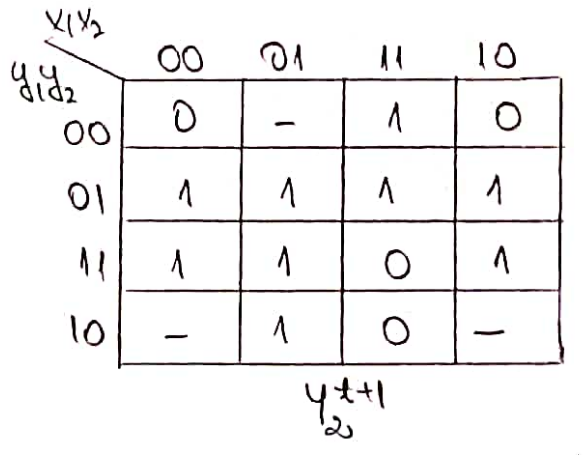 x₁x₂
00 01 11 10
y₁y₂
00 0 - 1 0
01 1 1 1 1
11 1 1 0 1
10 - 1 0 -
y₂ᵗ⁺¹